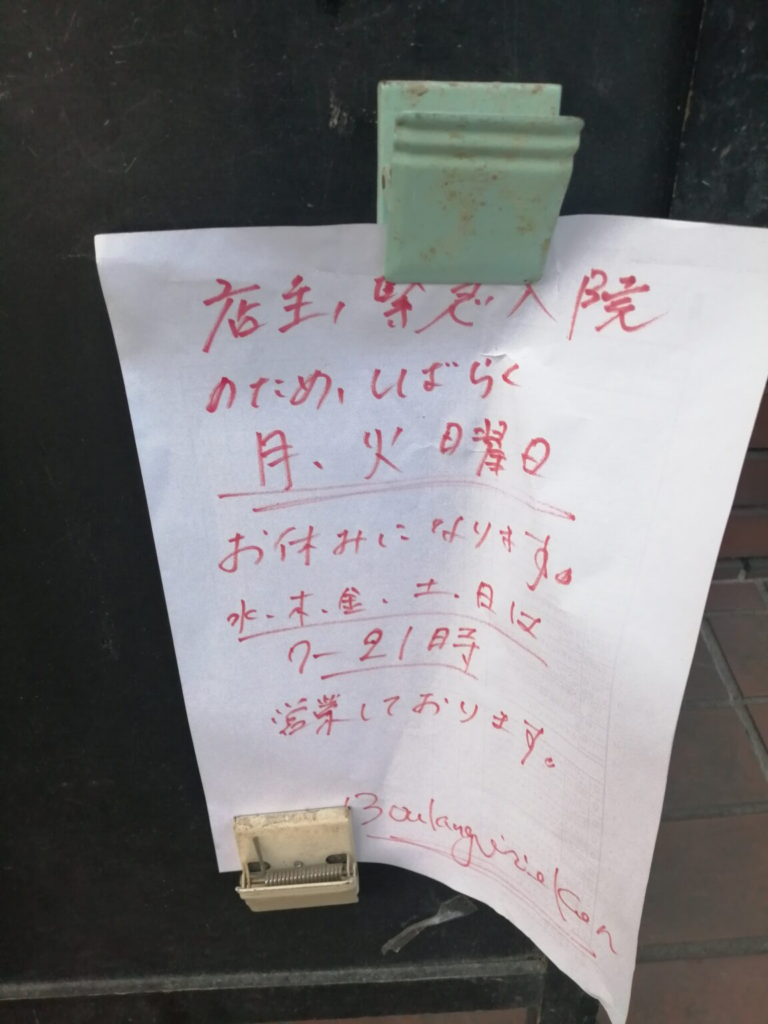 店主、緊急入院
のため、しばらく
月、火曜日
お休みになります。
水・木・金・土・日は
7-21時
営業しております。
Boulangerie Ken